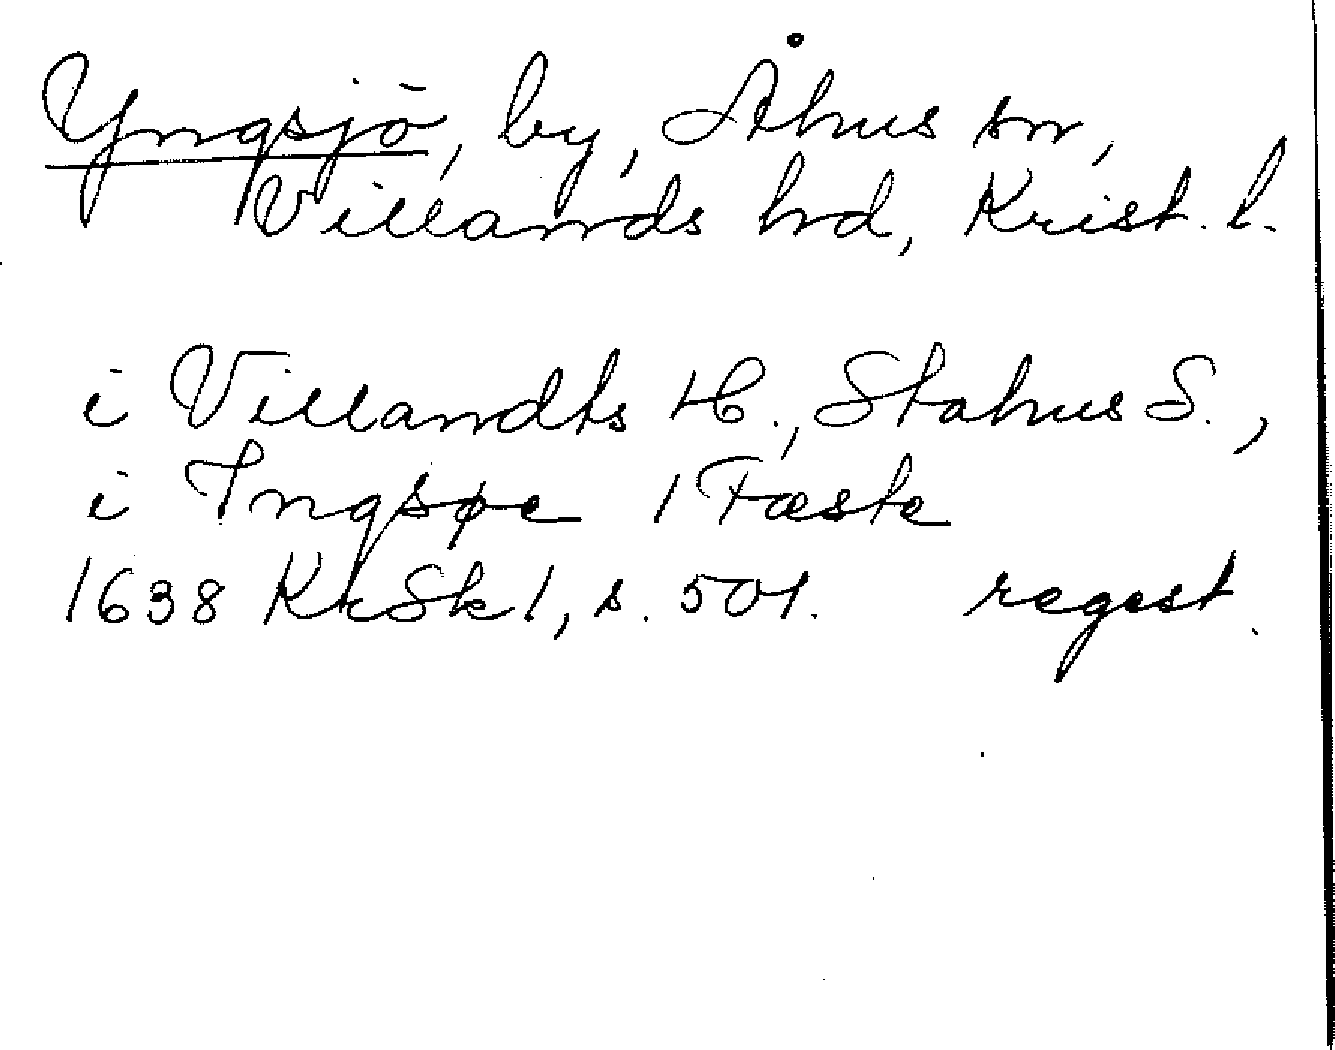 Yngsjö, by, Åhus sn,
Villands hd, Krist. l.
i Villandts H., Stahus S.,
i Ingsøe 1 Fæste
1638 KrSk 1, s. 501. regest.